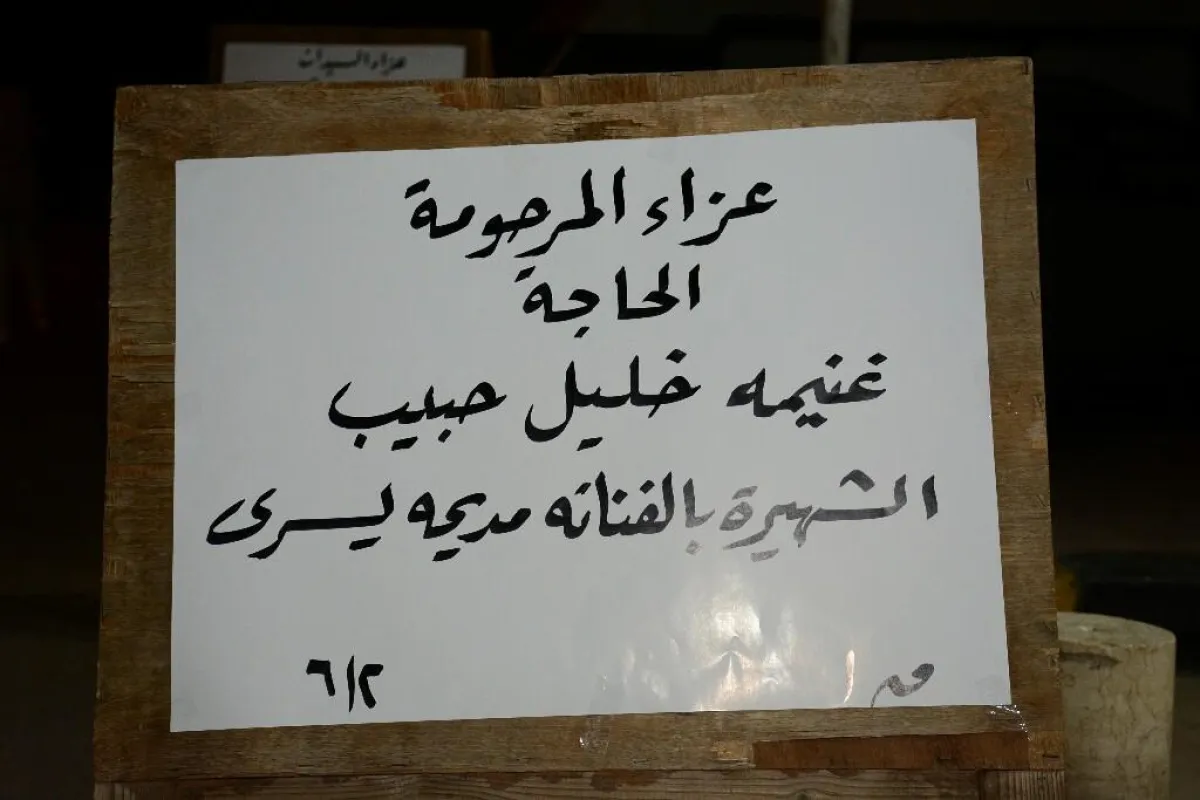 عزاء السيدات
عزاء المرحومة
الحاجة
غنيمه خليل حبيب
الشهيرة بالفنانه مديحه يسرى
٦/٢